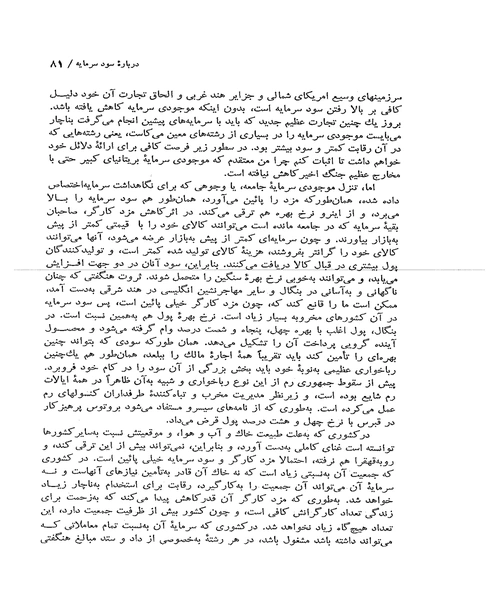 دربارهٔ سود سرمایه / ۸۱
سرزمینهای وسیع امریکای شمالی و جزایر هند غربی و الحاق تجارت آن خود دلیل
کافی بر بالا رفتن سود سرمایه است، بدون اینکه موجودی سرمایه کاهش یافته باشد.
بروز یك چنین تجارت عظیم جدید که باید با سرمایه‌های پیشین انجام می‌گرفت بناچار
می‌بایست موجودی سرمایه را در بسیاری از رشته‌های معین می‌کاست، یعنی رشته‌هایی که
در آن رقابت کمتر و سود بیشتر بود. در سطور زیر فرصت کافی برای ارائهٔ دلائل خود
خواهم داشت تا اثبات کنم چرا من معتقدم که موجودی سرمایهٔ بریتانیای کبیر حتی با
مخارج عظیم جنگ اخیر کاهش نیافته است.
اما، تنزل موجودی سرمایهٔ جامعه، یا وجوهی که برای نگاهداشت سرمایه‌اختصاص
داده شده، همان‌طورکه مزد را پائین می‌آورد، همان‌طور هم سود سرمایه را بــالا
می‌برد، و از اینرو نرخ بهره هم ترقی می‌کند. در اثر کاهش مزد کارگر، صاحبان
بقیهٔ سرمایه که در جامعه مانده است می‌توانند کالای خود را با قیمتی کمتر از پیش
به‌بازار بیاورند. و چون سرمایه‌ای کمتر از پیش به‌بازار عرضه می‌شود، آنها می‌توانند
کالای خود را گرانتر بفروشند، هزینهٔ کالای تولید شده کمتر است، و تولیدکنندگان
پول بیشتری در قبال کالا دریافت می‌کنند. بنابراین، سود آنان در دو جهت افزایش
می‌یابد، و می‌توانند به‌خوبی نرخ بهرهٔ سنگین را متحمل شوند. ثروت هنگفتی که چنان
ناگهانی و به‌آسانی در بنگال و سایر مهاجرنشین انگلیسی در هند شرقی به‌دست آمد،
ممکن است ما را قانع کند که، چون مزد کارگر خیلی پائین است، پس سود سرمایه
در آن کشورهای مخروبه بسیار زیاد است. نرخ بهرهٔ پول هم به‌همین نسبت است. در
بنگال، پول اغلب با بهره چهل، پنجاه و شصت درصد وام گرفته می‌شود و محصــول
آینده گرویی پرداخت آن را تشکیل می‌دهد. همان طورکه سودی که بتواند چنین
بهره‌ای را تأمین کند باید تقریباً همهٔ اجارهٔ مالك را ببلعد، همان‌طور هم یك‌چنین
رباخواری عظیمی به‌نوبهٔ خود باید بخش بزرگی از آن سود را در کام خود فروبرد.
پیش از سقوط جمهوری رم از این نوع رباخواری و شبیه به‌آن ظاهراً در همهٔ ایالات
رم شایع بوده است، و زیرنظر مدیریت مخرب و تباه‌کنندهٔ طرفداران کنسولهای رم
عمل می‌کرده است. به‌طوری که از نامه‌های سیسرو مستفاد می‌شود بروتوس پرهیزکار
در قبرس با نرخ چهل و هشت درصد پول قرض می‌داد.
درکشوری که به‌علت طبیعت خاك و آب و هوا، و موقعیتش نسبت به‌سایرکشورها
توانسته است غنای کاملی به‌دست آورد، و بنابراین، نمی‌تواند بیش از این ترقی کند، و
روبه‌قهقرا هم نرفته، احتمالا مزد کارگر و سود سرمایه خیلی پائین است. در کشوری
که جمعیت آن به‌نسبتی زیاد است که نه خاك آن قادر به‌تأمین نیازهای آنهاست و نــه
سرمایهٔ آن می‌تواند آن جمعیت را به‌کارگیرد، رقابت برای استخدام به‌ناچار زیــاد
خواهد شد. به‌طوری که مزد کارگر آن قدرکاهش پیدا می‌کند که به‌زحمت برای
زندگی تعداد کارگرانش کافی است، و چون کشور بیش از ظرفیت جمعیت دارد، این
تعداد هیچ‌گاه زیاد نخواهد شد. درکشوری که سرمایهٔ آن به‌نسبت تمام معاملاتی کــه
می‌تواند داشته باشد مشغول باشد، در هر رشتهٔ به‌خصوصی از داد و ستد مبالغ هنگفتی